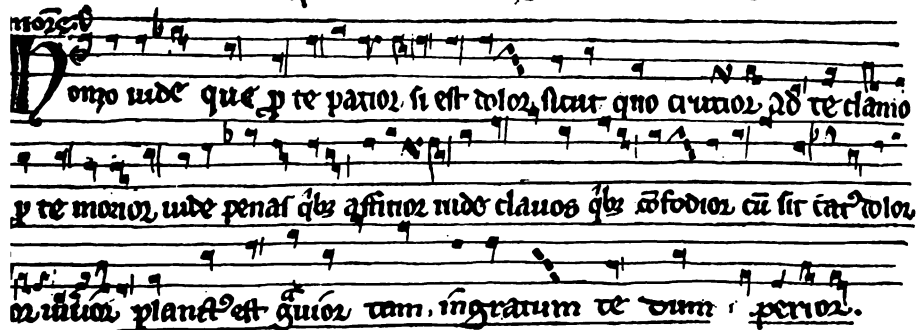 Homo uide que ꝑ te patior si est dolor sicut quo crucior ad te clamo
ꝑ te morior uide penas qͥbꝫ afficior uide clauos qͥbꝫ cōfodior cū sit tātꝰ dolor
or planctꝰ est gͣuior tam ingratum te dum perior.